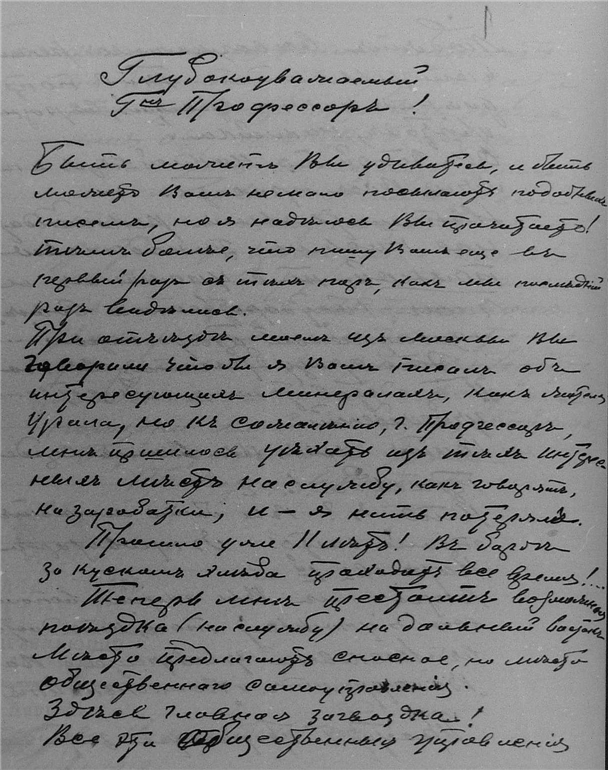 1
Глубокоуважаемый
Гнъ Профессоръ!
Быть можетъ Вы удивитесь, и быть
можетъ Вамъ немало посылаютъ подобныхъ
писемъ, но я надѣюсь Вы прочитаете!
тѣмъ болѣе, что пишу Вамъ еще въ
первый разъ съ тѣхъ поръ, какъ мы послѣдній
разъ видѣлись.
При отъѣздѣ моемъ изъ Москвы Вы
говорили чтобы я Вамъ писалъ объ
интересующихъ минералахъ, какъ житель
Урала, но къ сожалѣнію, г. Профессоръ,
мнѣ пришлось уѣхать изъ тѣхъ интерес
ныхъ мѣстъ на службу, какъ говорятъ,
на заработки, и – я нить потерялъ.
Прошло уже 11 лѣтъ! Въ борьбѣ
за кускомъ хлѣба проходитъ все время!...
Теперь мнѣ предстоитъ возможная
поѣздка (на службу) на дальній востокъ
Мѣсто предлагаютъ сносное, но мѣсто
общественнаго самоуправленія.
Здѣсь главная загвоздка!
Все эти общественныя управленія